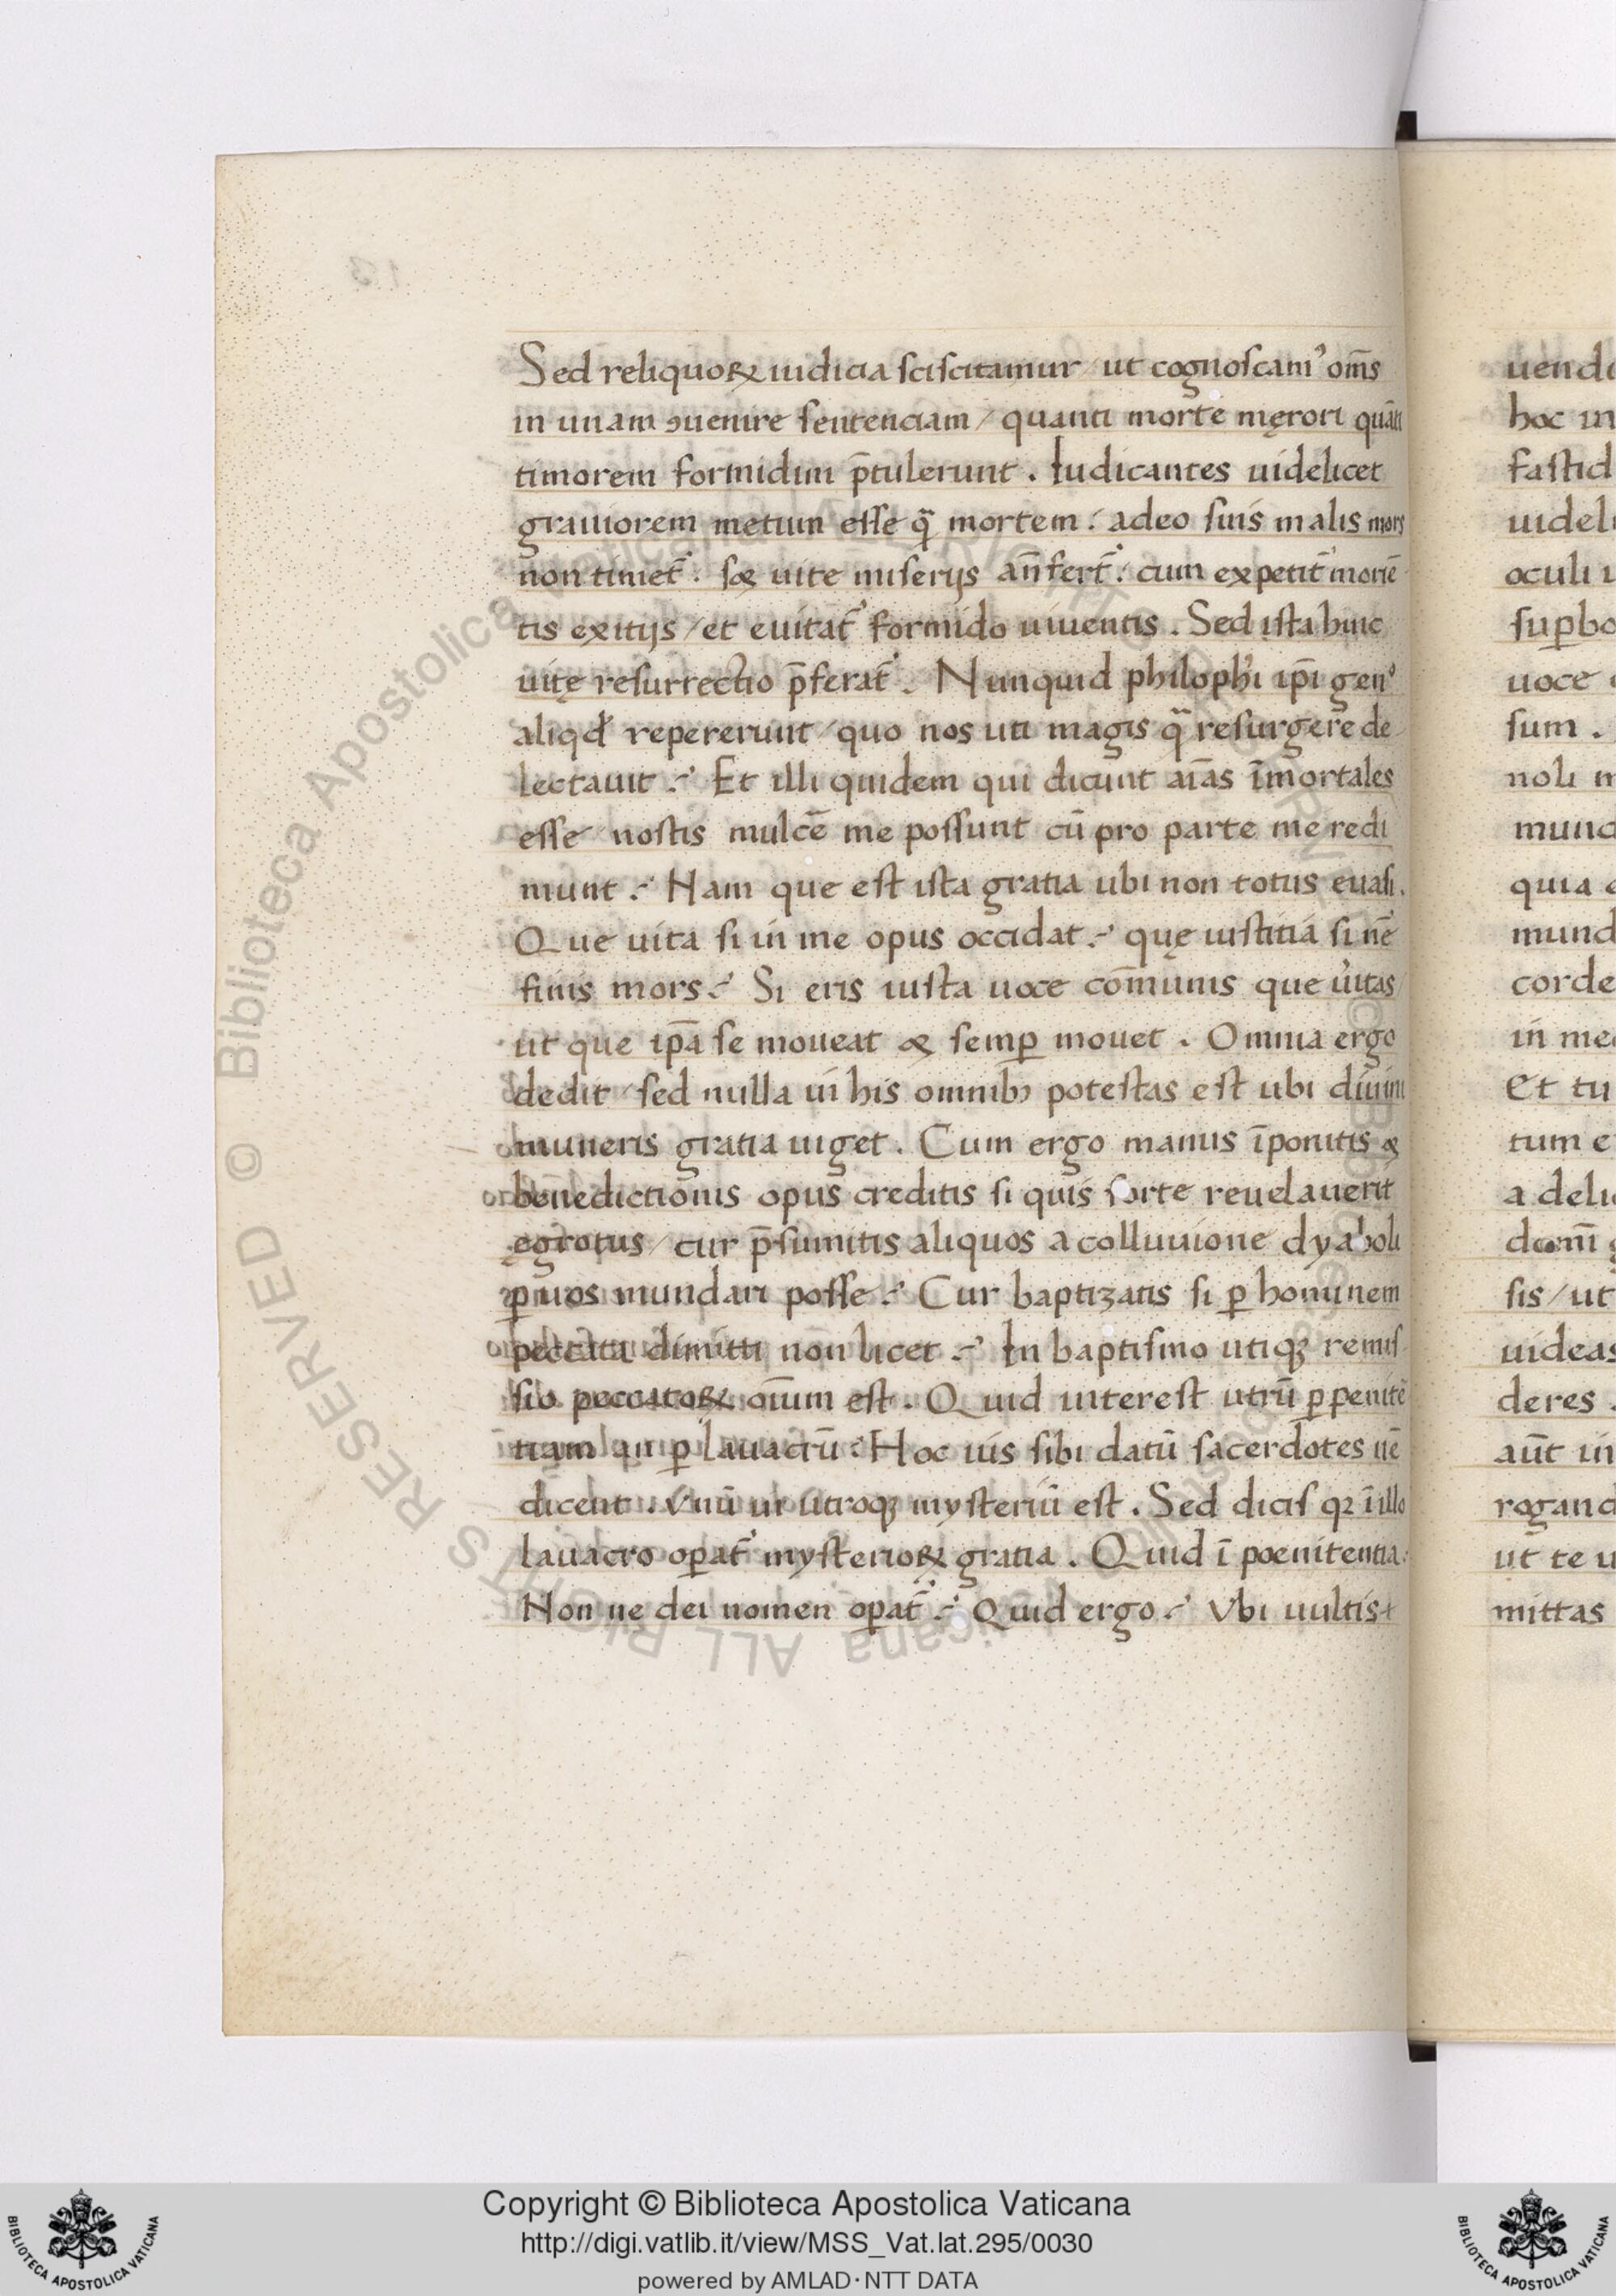 Sed reliquoꝝ iudicia sciscitamur / ut cognoscamꝰ om̄s
in unam ꝯuenire sentenciam / quanti morte męrori quāti
timorem formidini p̄tulerunt . Iudicantes uidelicet
grauiorem metum esse qͣ̄ mortem : adeo suis malis mors
non timet᷑ . sꝫ uite miserijs an̄fert᷑ : cum expetit᷑ moriē
tis exitijs / et euitat᷑ formido uiuentis . Sed ista huic
uitę resurrectio p̄ferat᷑ . Nunquid philoph̓i ip̄i genꝰ
aliqđ repererunt / quo nos uti magis qͣ̄ resurgere de
lectauit ? Et illi quidem qui dicunt aīas īmortales
esse nostis mulcē me possunt cū pro parte me redi
munt ? Nam que est ista gratia ubi non totus euasi .
Que uita si in me opus occidat ? quę iustitia si nē
finis mors ? Si eris iusta uoce com̄unis que u̓itas
ut que ip̄a se moueat ꝫ semꝑ mouet . Omnia ergo
dedit / sed nulla ui his omnibꝫ potestas est ubi diuini
muneris gratia uiget . Cum ergo manus īponitis ꝫ
benedictionis opus creditis si quis forte reuelauerit
ęgrotus / cur p̄sumitis aliquos a colluuione dyaboli
ꝑ uos mundari posse ? Cur baptizatis si ꝑ hominem
peccata dimitti non licet ? In baptismo utiqꝫ remis
sio peccatoꝝ oīum est . Quid interest utrū ꝑ penitē
tiam an ꝑ lauacrū : Hoc uis sibi datū sacerdotes nē
dicent . Vnū ur utroqꝫ mysteriū est . Sed dicis qꝛ ī illo
lauacro oꝑat᷑ mysterioꝝ gratia . Quid ī poenitentia :
Non ne dei nomen oꝑat᷑ ? Quid ergo ? Vbi uultis
uendi
hoc in
fastid
uideli
oculi
suꝑbo
uoce
sum .
noli m
mund
quia
mund
corde
in me
Et tu
tum e
a deli
dom̄i
sis / ut
uideas
deres .
aūt in
rogand
ut te u
mittas
Copyright © Biblioteca Apostolica Vaticana
http://digi.vatlib.it/view/MSS_Vat.lat.295/0030
powered by AMLAD · NTT DATA
BIBLIOTECA APOSTOLICA VATICANA
BIBLIOTECA APOSTOLICA VATICANA
© Biblioteca Apostolica Vaticana ALL RIGHTS RESERVED